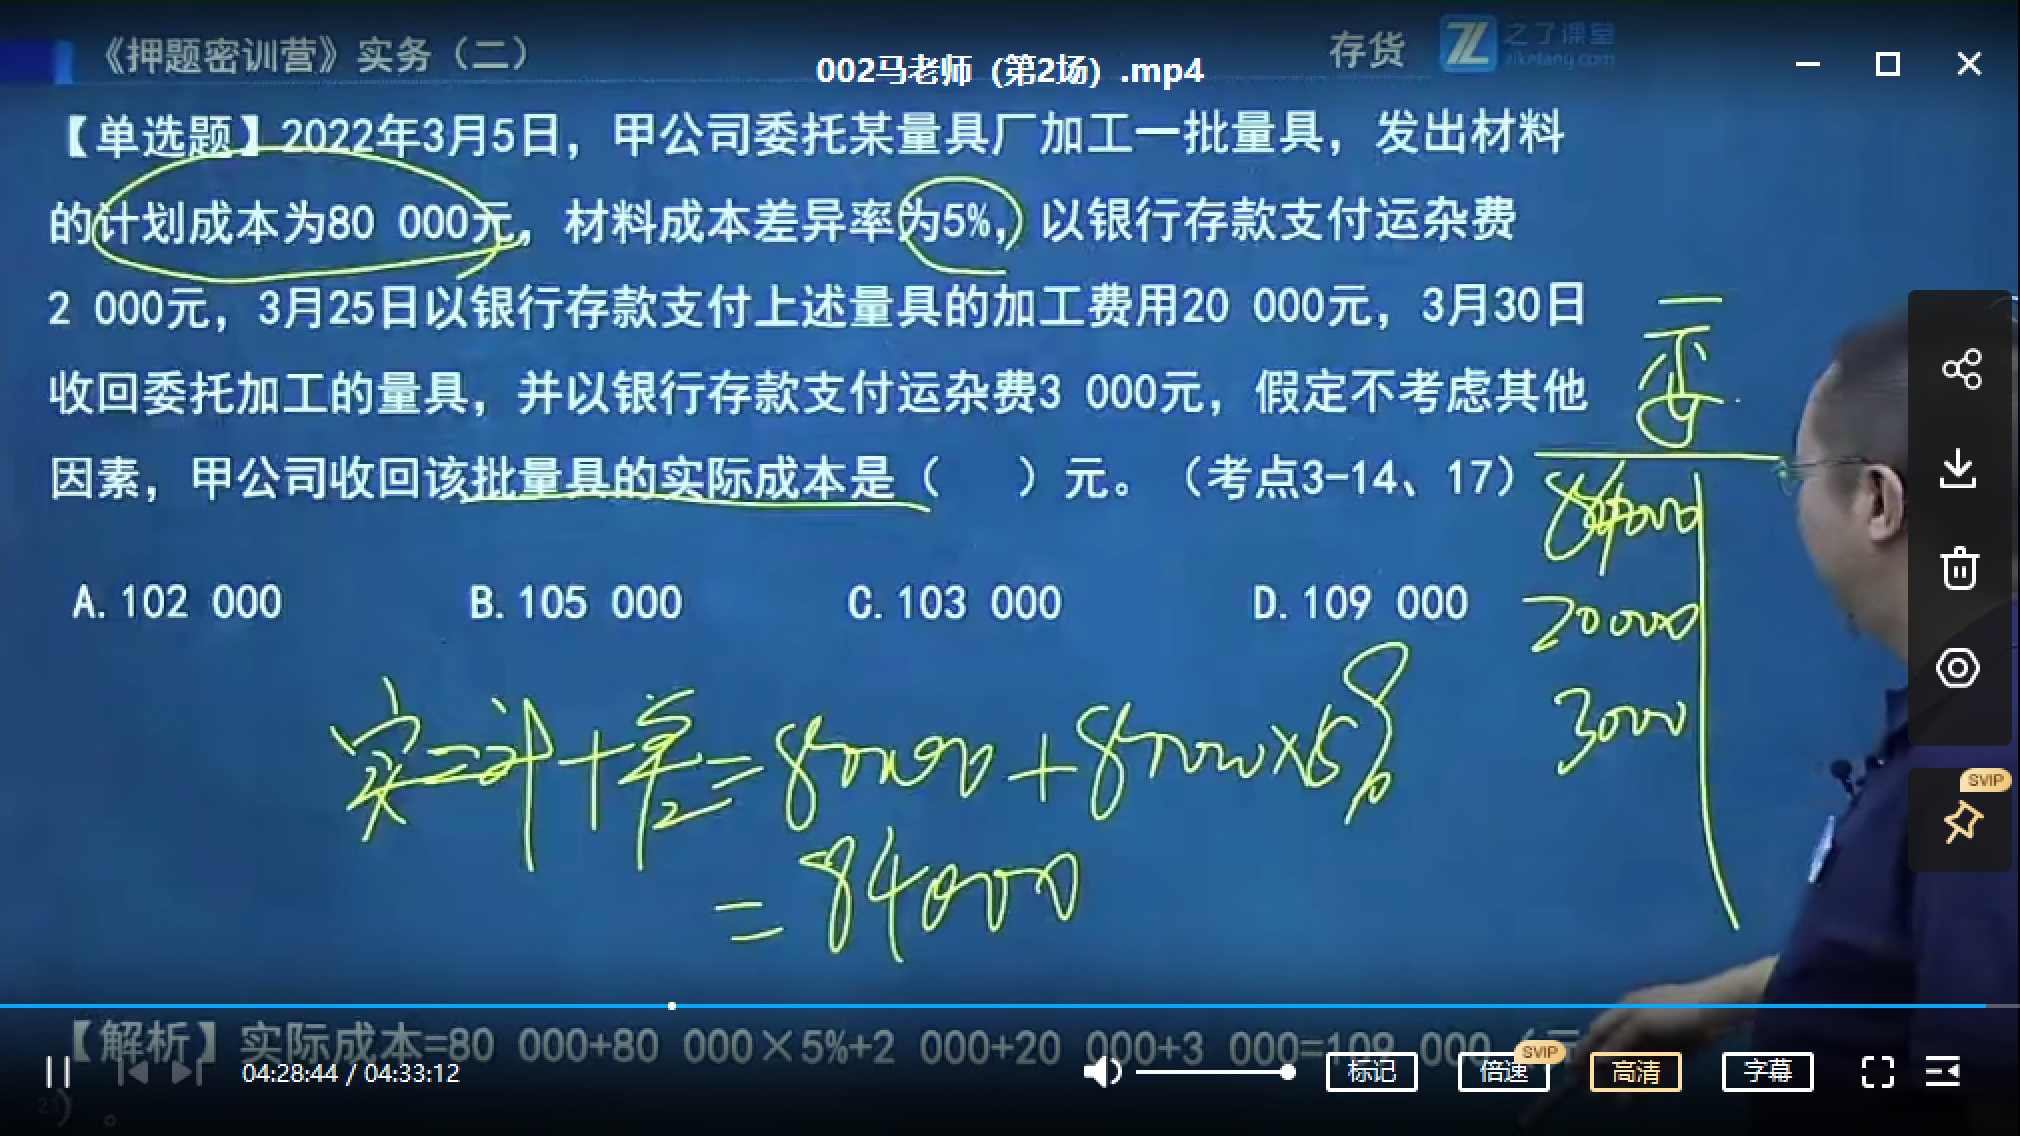 《押题密训营》实务（二）
存货
之了课堂
zlketang.com
002马老师（第2场）.mp4
【单选题】2022年3月5日，甲公司委托某量具厂加工一批量具，发出材料
的计划成本为80 000元，材料成本差异率为5%，以银行存款支付运杂费
2 000元，3月25日以银行存款支付上述量具的加工费用20 000元，3月30日
收回委托加工的量具，并以银行存款支付运杂费3 000元，假定不考虑其他
因素，甲公司收回该批量具的实际成本是（　　）元。（考点3-14、17）
84000
20000
3000
A.102 000 B.105 000 C.103 000 D.109 000
实=计+差=80000+80000×5%
=84000
SVIP
【解析】实际成本=80 000+80 000×5%+2 000+20 000+3 000=109 000（元
）。
04:28:44 / 04:33:12
标记
倍速
SVIP
高清
字幕